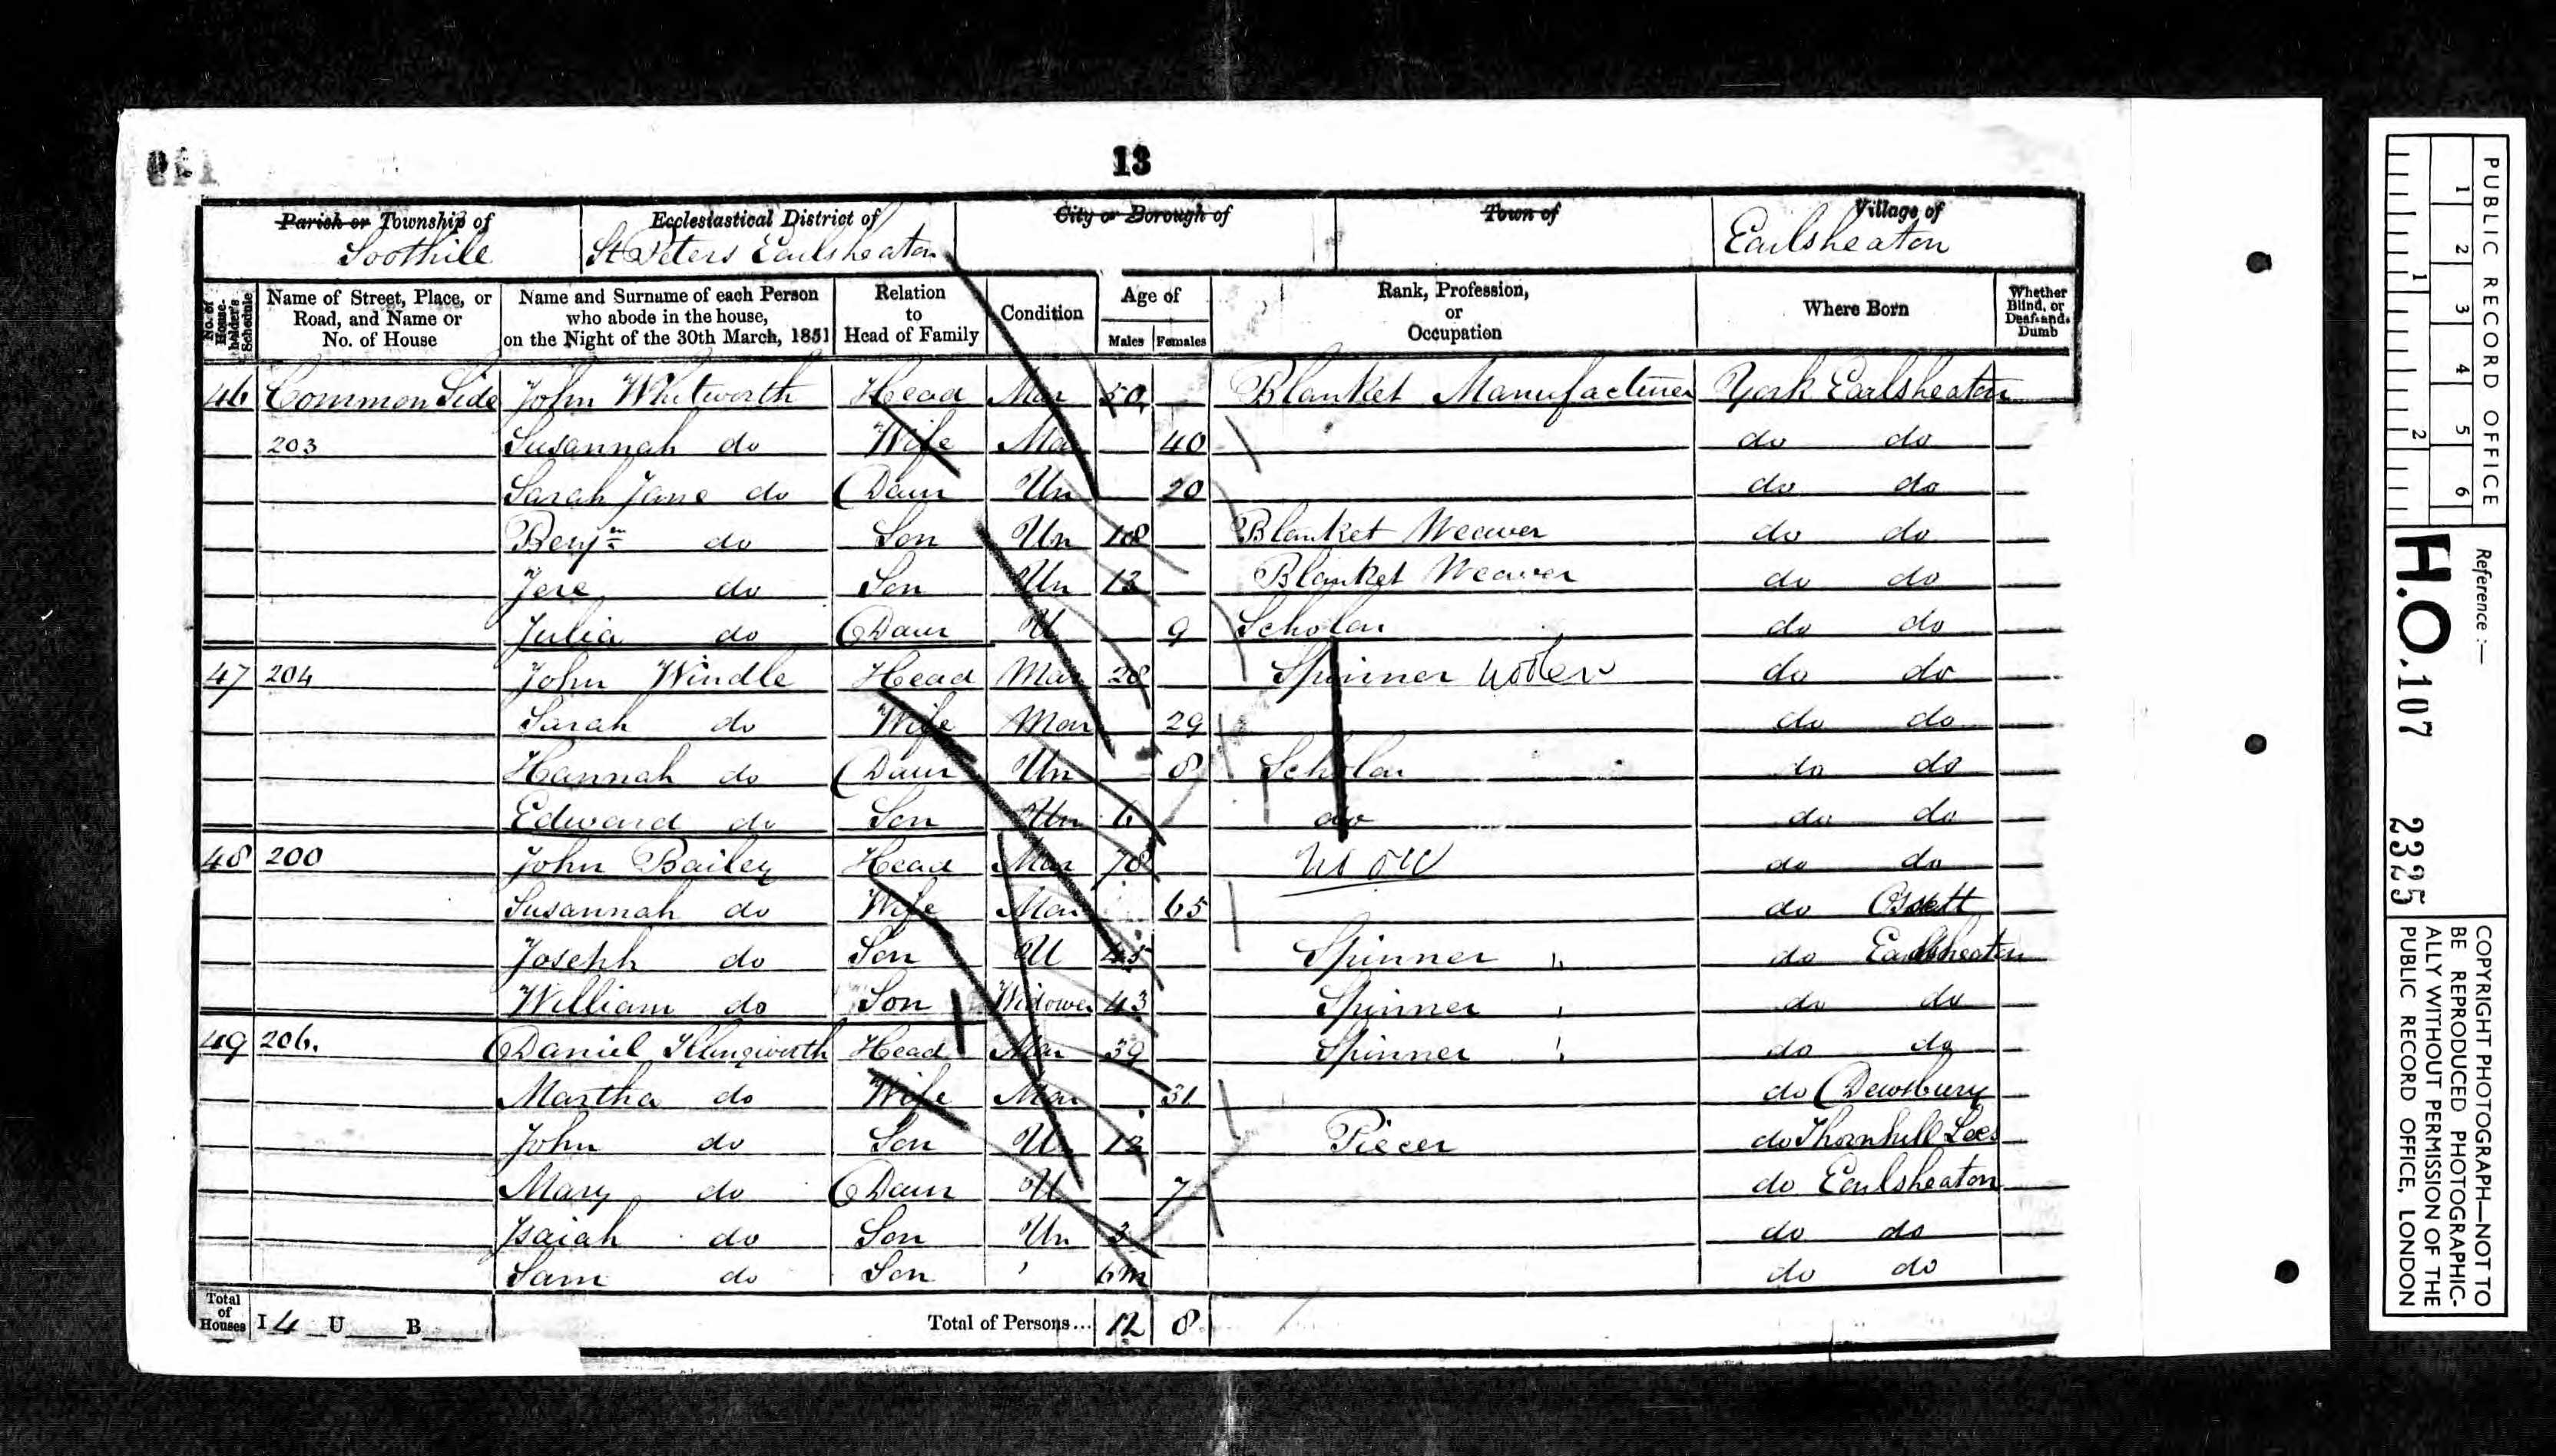 13
Parish or Township of Ecclesiastical District of City or Borough of Town of Village of
Soothill St Peters Earlsheaton Earlsheaton
No. of House-holder's Schedule
Name of Street, Place, or Road, and Name or No. of House
Name and Surname of each Person who abode in the house, on the Night of the 30th March, 1851
Relation to Head of Family
Condition
Age of
Males Females
Rank, Profession, or Occupation
Where Born
Whether Blind, or Deaf-and-Dumb
46 Common Side John Whitworth Head Mar 50 Blanket Manufacturer York Earlsheaton
203 Susannah do Wife Mar 40 do do
Sarah Jane do Daur Un 20 do do
Benjn do Son Un 18 Blanket Weaver do do
Jere do Son Un 13 Blanket Weaver do do
Julia do Daur U 9 Scholar do do
47 204 John Windle Head Mar 28 Spinner Woolen do do
Sarah do Wife Mar 29 do do
Hannah do Daur Un 8 Scholar do do
Edward do Son Un 6 do do do
48 200 John Bailey Head Mar 78 do do
Susannah do Wife Mar 65 do Ossett
Joseph do Son U 45 Spinner do Earlsheaton
William do Son Widower 43 Spinner do do
49 206. Daniel Illingworth Head Mar 39 Spinner do do
Martha do Wife Mar 31 do Dewsbury
John do Son U 12 Piecer do Thornhill Lees
Mary do Daur U 7 do Earlsheaton
Isaiah do Son Un 3 do do
Sam do Son 6m do do
Total of Houses I 4 U B Total of Persons... 12 8
PUBLIC RECORD OFFICE
1 2 3 4 5 6
1 2
Reference :—
H.O. 107 2325
COPYRIGHT PHOTOGRAPH—NOT TO
BE REPRODUCED PHOTOGRAPHIC-
ALLY WITHOUT PERMISSION OF THE
PUBLIC RECORD OFFICE, LONDON